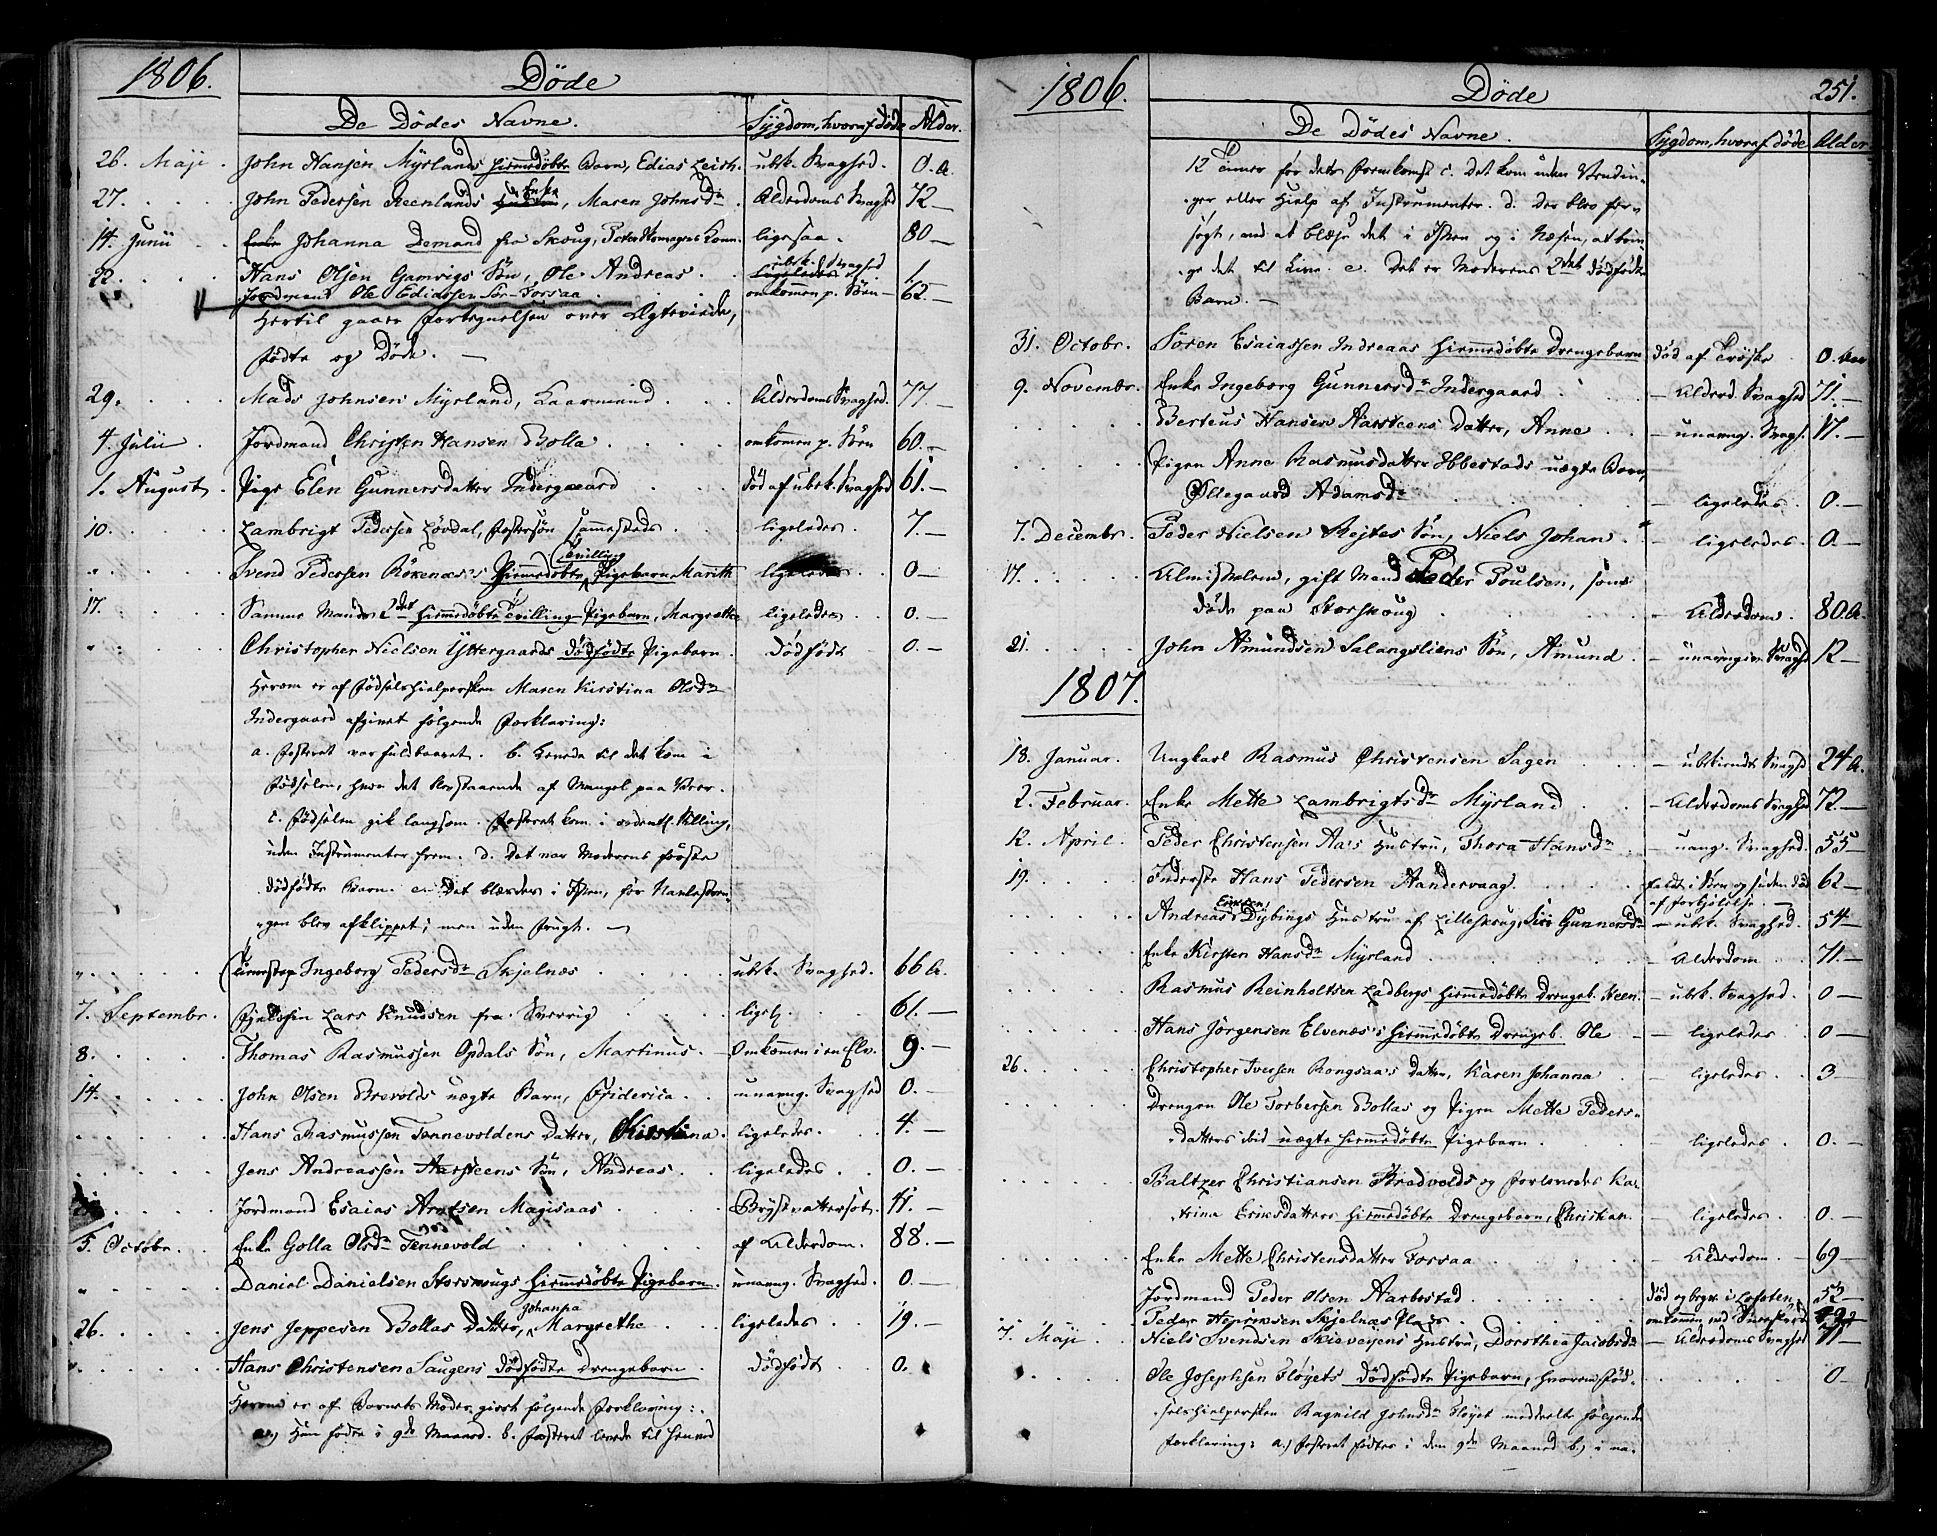 1806.
Döde
De Dödes Navne. Sÿgdom, hvoraf döde Alder.
26. Maji. John Hansen Mÿrlands hiemmedöbte Barn, Edias ubk. Svaghed. 0. A.
27. John Pedersen Reenlands Enke, Maren Johnsdr. Alderdoms Svaghed 72 —
14. Junii Johanna Demand fra Skoug, ligesaa. 80 —
22. Hans Olsen Gamvigs Sön, Ole Andreas. ubk. Svaghed
Jordmand Ole Ediassen Sör-Forsaa. omkommen p. Söen — 62. —
Hertil gaaer Fortegnelsen over Ægteviede,
födte og Döde. —
29. Mads Johnsen Mÿrland, Kaarmand. Alderdoms Svaghed. 77 —
4. Julii. Jordmand Christen Hansen Bolla. omkomen p. Söen 60. —
1. August. Pige Elen Gunnersdatter Indergaard död af ubk. Svaghed 61. —
10. Lambrigt Pedersen Lövdal, Fostersön sammesteds ligeledes. 7. —
" Svend Pedersen Rökenæs's hiemmedöbte Tvilling Pigebarn Marith ligeledes 0 —
17. Samme Mands 2det hiemmedöbte Tvilling Pigebarn, Margrethe ligeledes 0. —
" Christopher Nielsen Ÿttergaards dödfödte Pigebarn. Dödfödt 0. —
Herom er af Födselshielpersken Maren Kirstina Olsdr
Indergaard afgivet fölgende Forklaring:
a. Fosteret var fuldbaaret. b. Levede til det kom i
Födselen, hvor det blev staaende af Mangel paa Veer.
c. Födselen gik langsom. Fosteret kom i ordentl. Stilling,
uden Instrumenter frem. d. Det var Moderens förste
dödfödte Barn. e. Det blæstes i Issen, för Navlestren-
gen blev afklippet; men uden Frugt. —
" Ingeborg Pedersdr Skjelnæs ubk. Svaghed. 66 A.
7. Septembr. Lars Knudsen fra Sverrig ligel. 61. —
8. Thomas Rasmussen Opdals Sön, Martinus. Omkommen i en Elv. 9. —
14. John Olsen Brevolds uægte Barn, Friderica unavng. Svaghed 0. —
Hans Rasmussen Tennevoldens Datter, Kirstina. ligeledes. 4. —
Jens Andreassen Aarsteens Sön, Andreas. ligeledes. 0. —
Jordmand Esaias Arntsen Magisaas Brÿstvattersot. 41. —
5. Octobr. Enke Golla Olsdr Tennevold af Alderdom. 88. —
" Daniel Danielsen Storskougs hiemmedöbte Pigebarn. unavng. Svaghed. 0. —
26. Jens Jeppesen Bollas Datter, Johanna Margrethe ligeledes 19. —
" Hans Christensen Saugens dödfödte Drengebarn dödfödt 0.
Herom er af Barnets Moder givet fölgende Forklaring:
a) Hun födte i 9de Maaned. b. Fosteret levede til henved
1806. Döde 251.
De Dödes Navne. Sÿgdom, hvoraf döde Alder
12 Timer för dets Fremkomst c. Det kom uden Vendin-
ger eller Hielp af Instrumenter. d. Der blev for-
sögt, ved at blæse det i Issen og i Næsen, at brin-
ge det til Live. e. Det er Moderens 2det dödfödte
Barn. —
31. Octobr. Sören Esaiassen Indreaas hiemmedöbte Drengebarn död af Tröske 0. Aar
9. Novembr. Enke Ingeborg Gunnersdr Indergaard — Alderd. Svaghed 71. —
Berteus Hansen Aarsteens Datter, Anne — unavng. Svagh. 17. —
Pigen Anne Rasmusdatter Ibbestads uægte Barn,
Oldegaard Adamsdr — ligeledes 0. —
7. Decembr. Peder Nielsen Rejtes Sön, Niels Johan — ligeledes 0. —
17. Almislem, gift Mand Peder Poulsen, som
döde paa Storskoug — Alderdom. 80. A.
21. John Amundsen Salangsliens Sön, Amund — unavngiven Svaghed 12 —
1807.
18. Januar. Ungkarl Rasmus Christensen Sagen — ubekiendt Svaghed 24 A.
2. Februar. Enke Mette Lambrigtsdr Mÿrland — Alderdoms Svaghed 72 —
12. April. Peder Christensen Aa's Hustru, Thora Hansdr — unavng. Svaghed. 55 —
19. Inderste Hans Pedersen Aandervaag faldt i Söen og siden död 62 —
af Forkjölelse. —
Andreas Ericksen Dÿbings Hustru af Lilleskoug, Siri Gunnersdr — ubk. Svaghed. 54 —
Enke Kirsten Hansdr Mÿrland — Alderdom 71. —
Rasmus Reinholtsen Ladbergs hiemmedöbte Drengeb. Steen — ubk. Svaghed. 0 —
Hans Jörgensen Elvenæs's hiemmedöbte Drengeb. Ole — ligeledes 0 —
26. Christopher Iversen Rongsaa's Datter, Karen Johanna — ligeledes 3 —
Drengen Ole Torbersen Bollas og Pigen Mette Peders-
datters ibid uægte hiemmedöbte Pigebarn. — ligeledes 0. —
Baltzer Christiansen Bredvolds og Forlovedes Ka-
trina Eriksdatters hiemmedöbte Drengebarn, Christian — ligeledes 0. —
Enke Mette Christensdatter Forsaa — Alderdom — 69 —
Jordmand Peder Olsen Aarbostad död og begr. i Lofoten 52 —
Peder Henriksen Skjelnæs Plads omkommen ved
7. Maji Niels Svendsen Skieveyens Hustru, Dorothea Jacobsdr — Alderdoms Svaghed 71 —
Ole Josephsen Flöyets dödfödte Pigebarn, hvorom Föd- 0 —
selshielpersken Ragnild Johnsdr Flöyet meddeelte fölgende
Forklaring: a) Fosteret födtes i den 9de Maaned b) i na-